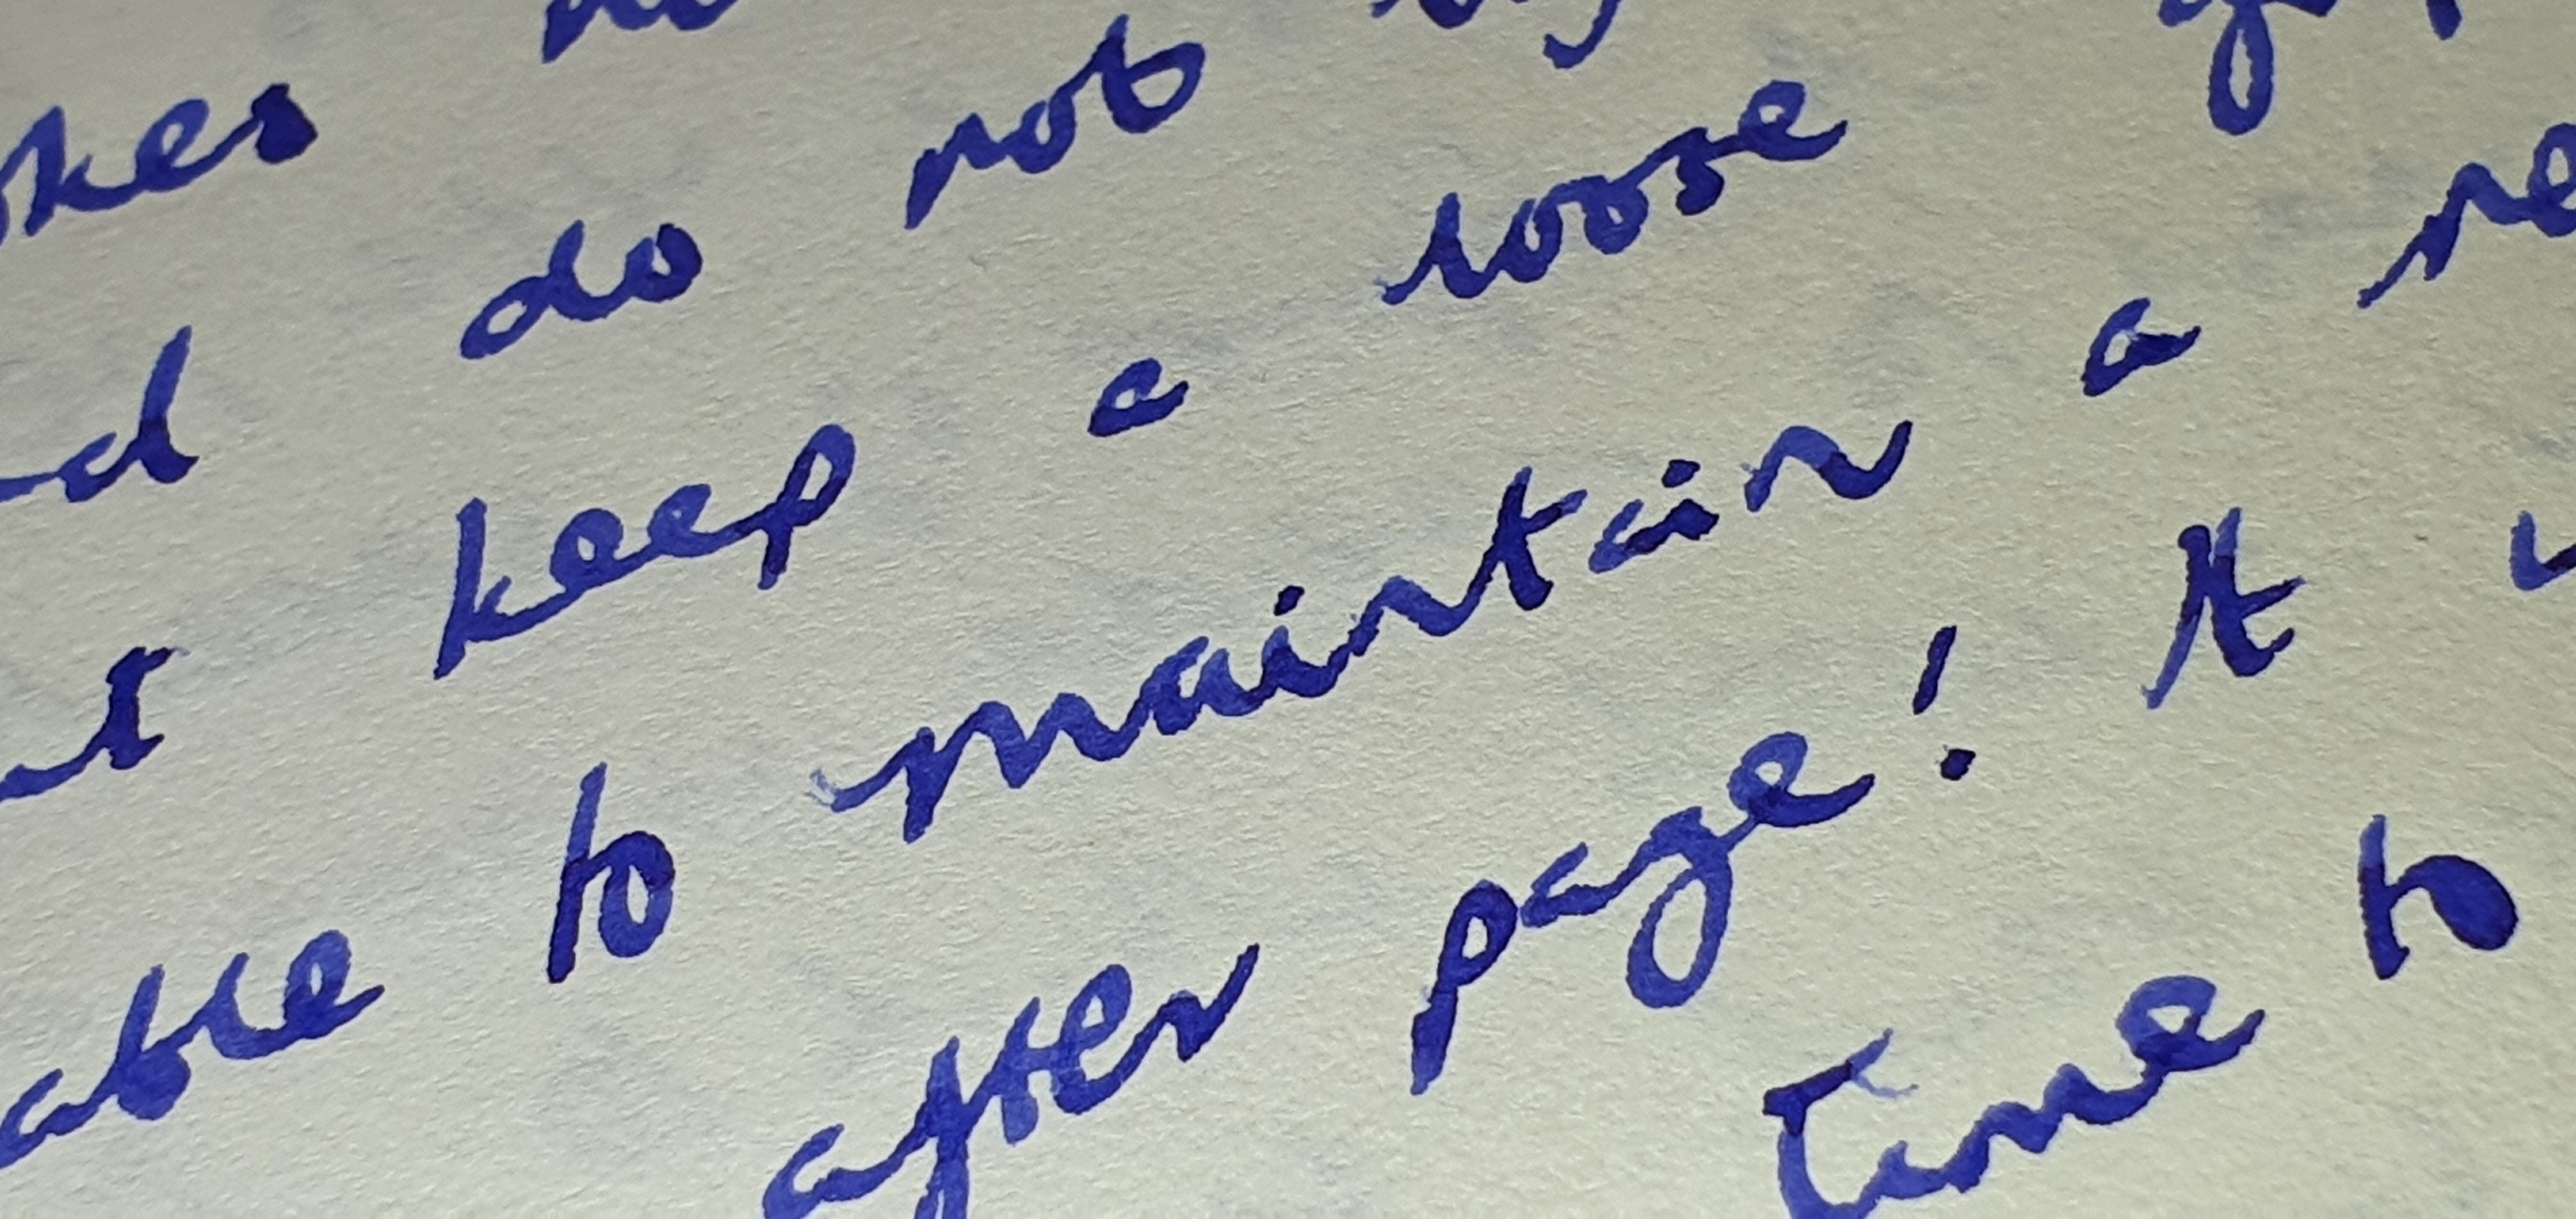 kes
d do not
t keep a loose
able to maintain a re
after page! It
time to